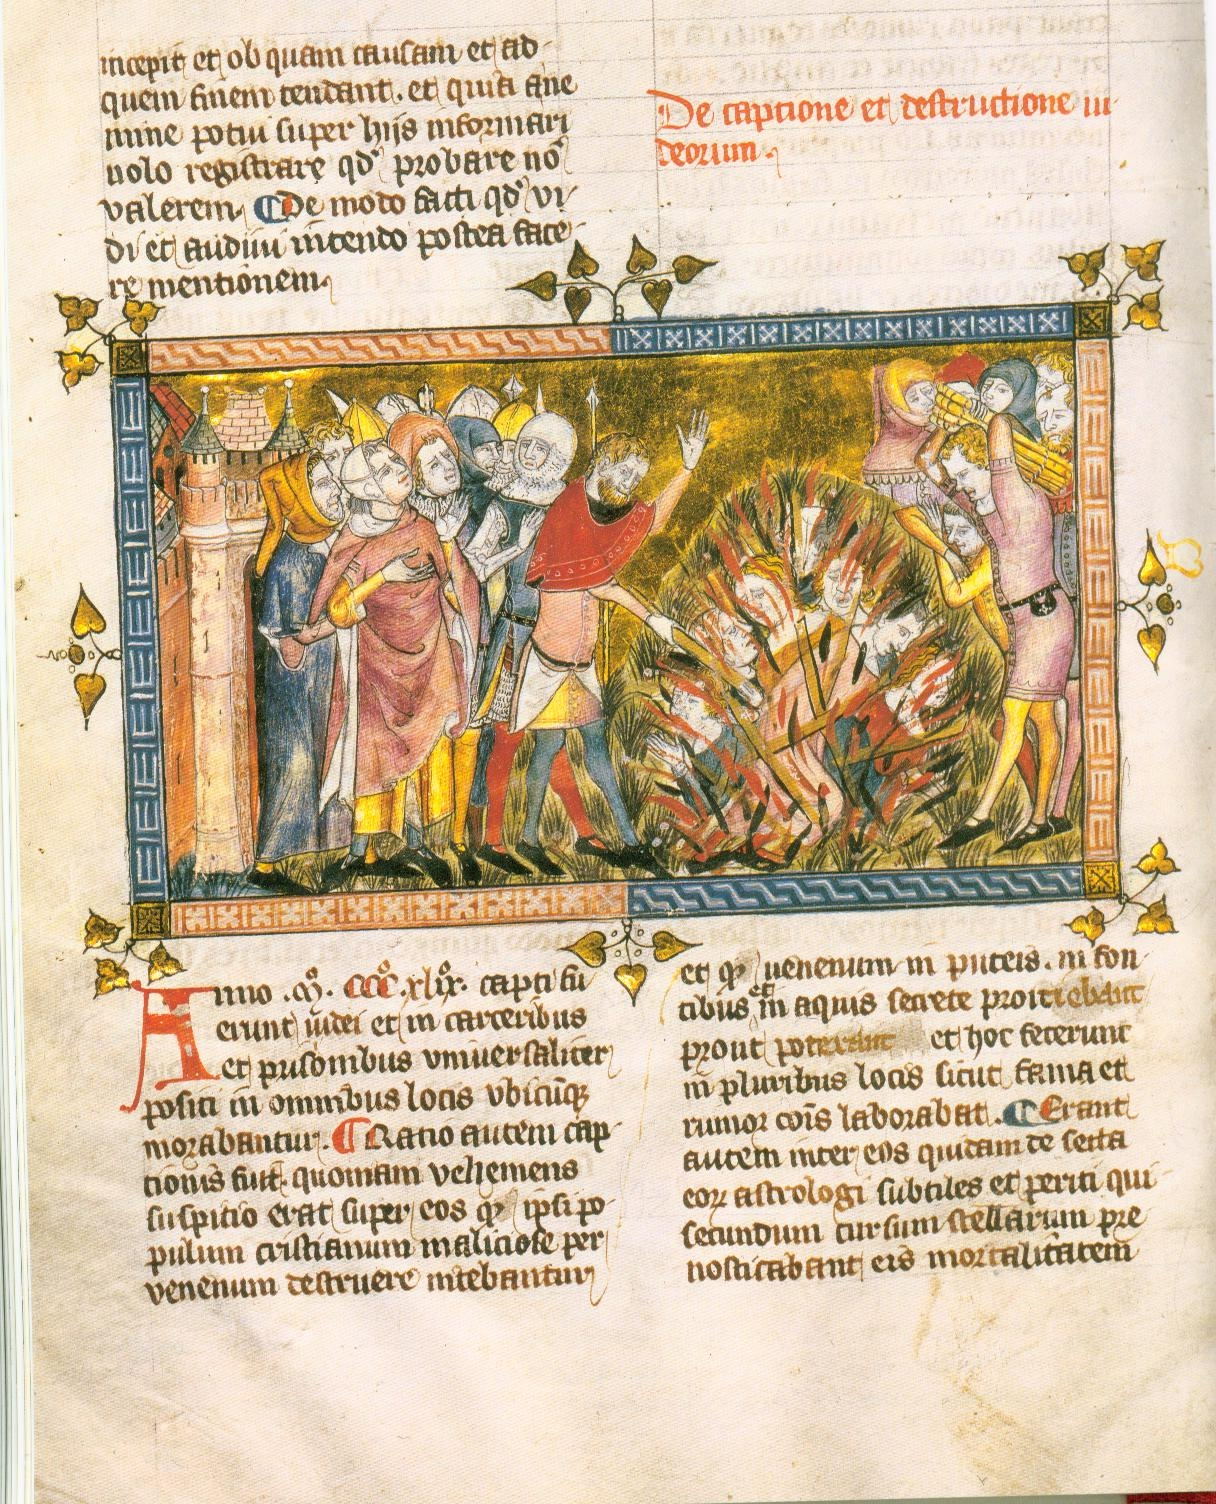 incepit et ob quam causam et ad
quem finem tendant. et quia ane
mine potui super hijs informari
nolo registrare qd' probare no
valerem. De modo facti qd' vi
di et audiui intendo postea face
re mentionem.
De captione et destructione iu
deorum.
Anno .mº. cccº. xlixº. capti fu
erunt iudei et in carceribus
et prisonibus vniuersaliter
positi in omnibus locis vbicumque
morabantur. Ratio autem cap
tionis fuit. quoniam vehemens
suspitio erat super eos qz ipsi po
pulum cristianum maliciose per
venenum destruere nitebantur
et qz uenenum in puteis. in fon
tibus et in aquis secrete proiciebant
prout poterant et hoc fecerunt
in pluribus locis sicut fama et
rumor cois laborabat. Erant
autem inter eos quidam de secta
eorz astrologi subtiles et periti qui
secundum cursum stellarum pre
nosticabant eis mortalitatem